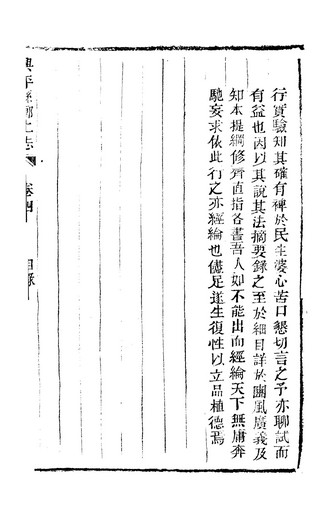 行實驗知其確有裨於民生婆心苦口懇切言之予亦聊試而
有益也因以其說其法摘要錄之至於細目詳於豳風廣義及
知本提綱修齊直指各書吾人如不能出而經綸天下無庸奔
馳妄求依此行之亦經綸也儘足遂生復性以立品植德焉
興平縣鄉土志
卷四
目錄